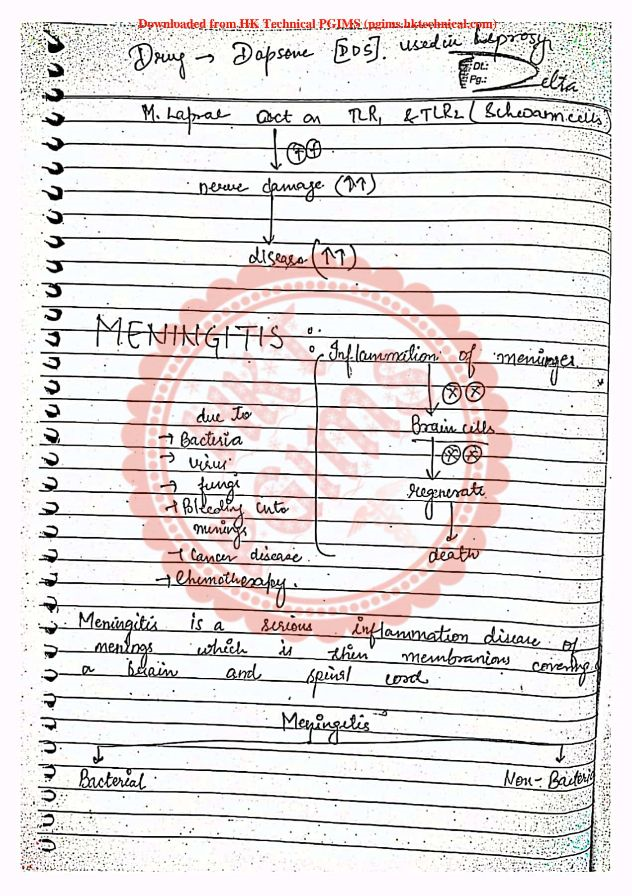 Downloaded from HK Technical PGIMS (pgims.hktechnical.com)
Drug → Dapsone [DDS]. used in Leprosy
DL:
Pg.:
Delta
M. Laprae act on TLR1 & TLR2 (Schwann cells)
↓ ↑↑
nerve damage (↑↑)
↓
disease (↑↑)
MENINGITIS :
Inflammation of meninges
↓ ⊗⊗
due to
Brain cells
→ Bacteria
↓ ⊗⊗
→ virus
→ fungi
regenerate
→ Bleeding into
menings
↓
→ Cancer disease
death
→ Chemotherapy.
Meningitis is a serious inflammation disease of
menings which is then membranious covering
a brain and spinal cord
Meningitis
Bacterial Non-Bacteri
HKT
PGIMS